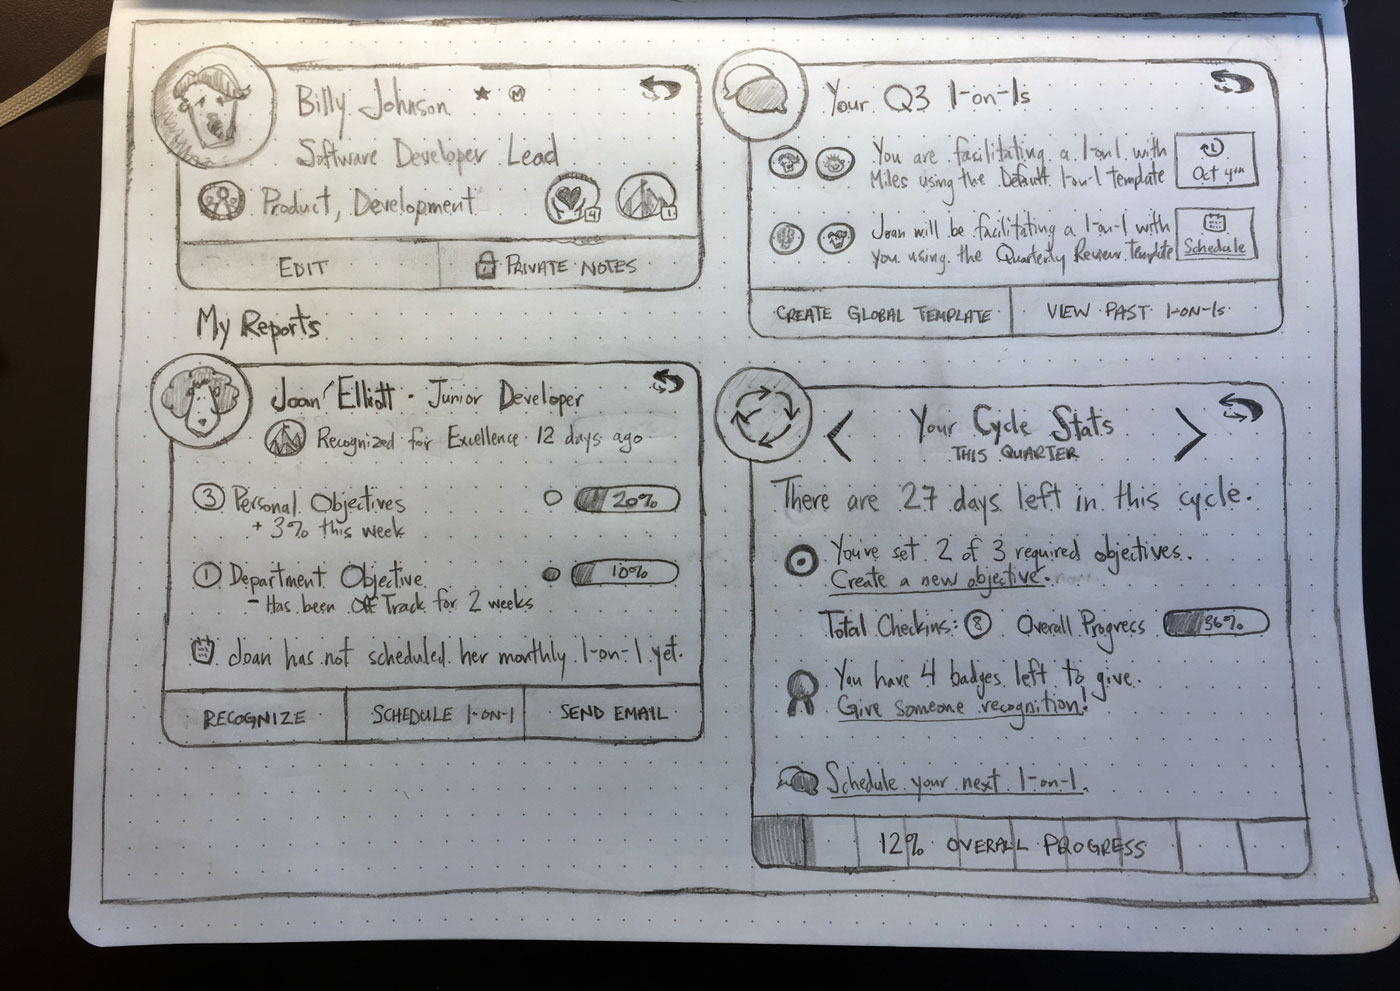 Billy Johnson ★ M
Software Developer Lead
Product, Development
4
1
EDIT
PRIVATE NOTES
My Reports
Joan Elliott - Junior Developer
Recognized for Excellence 12 days ago
3 Personal Objectives
20%
+ 3% this week
1 Department Objective
10%
- Has been Off Track for 2 weeks
Joan has not scheduled her monthly 1-on-1 yet.
RECOGNIZE
SCHEDULE 1-ON-1
SEND EMAIL
Your Q3 1-on-1s
You are facilitating a 1-on-1 with
Miles using the Default 1-on-1 template
Oct 4th
Joan will be facilitating a 1-on-1 with
you using the Quarterly Review Template
Schedule
CREATE GLOBAL TEMPLATE
VIEW PAST 1-ON-1s
Your Cycle Stats
THIS QUARTER
There are 27 days left in this cycle.
You've set 2 of 3 required objectives.
Create a new objective.
Total Checkins: 8 Overall Progress 36%
You have 4 badges left to give.
Give someone recognition!
Schedule your next 1-on-1.
12% OVERALL PROGRESS